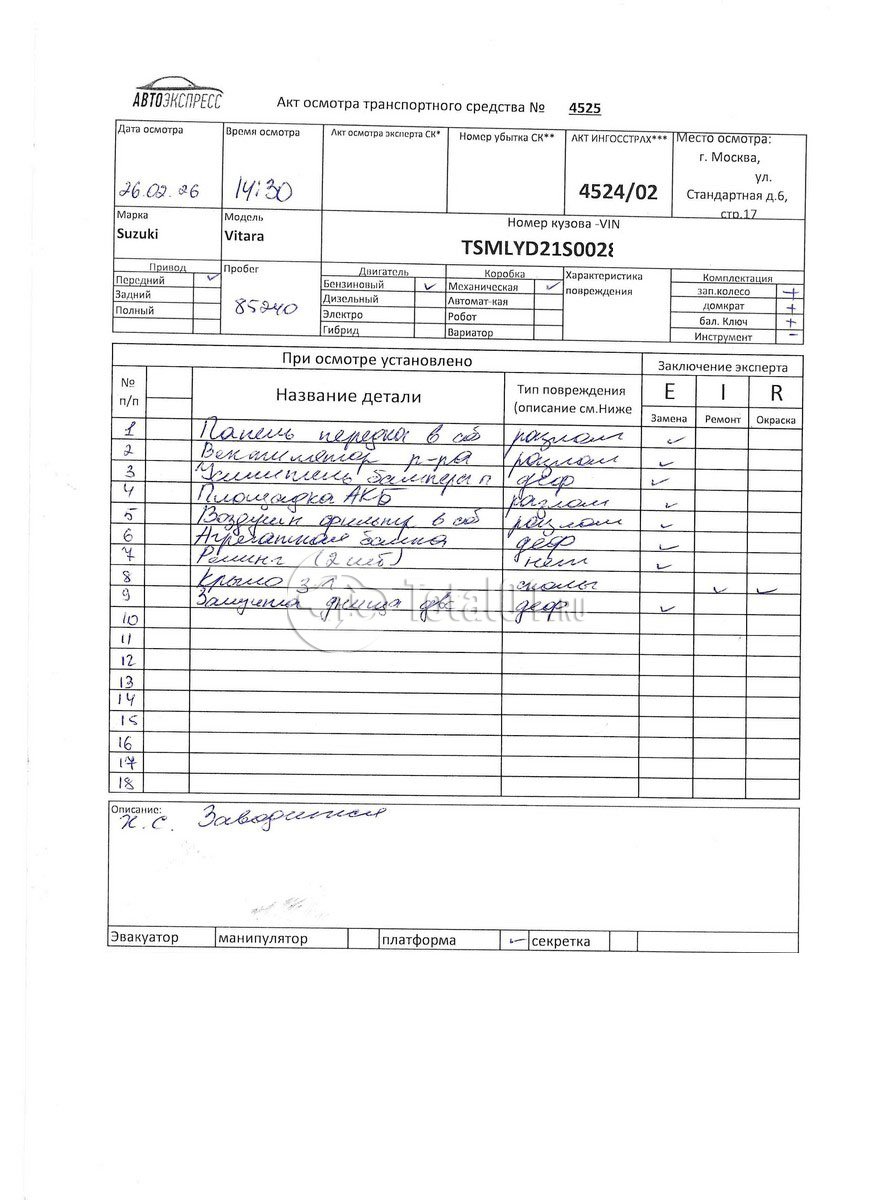 АВТОЭКСПРЕСС
Акт осмотра транспортного средства № 4525
Дата осмотра
26.02.26
Время осмотра
14:30
Акт осмотра эксперта СК*
Номер убытка СК**
АКТ ИНГОССТРАХ***
4524/02
Место осмотра:
г. Москва,
ул.
Стандартная д.6,
стр.17
Марка
Suzuki
Модель
Vitara
Номер кузова -VIN
TSMLYD21S0028
Привод
Передний ✓
Задний
Полный
Пробег
85240
Двигатель
Бензиновый ✓
Дизельный
Электро
Гибрид
Коробка
Механическая ✓
Автомат-кая
Робот
Вариатор
Характеристика
повреждения
Комплектация
зап.колесо +
домкрат +
бал. Ключ +
Инструмент -
При осмотре установлено
Заключение эксперта
№
п/п
Название детали
Тип повреждения
(описание см.Ниже
E I R
Замена Ремонт Окраска
1 Панель передка в сб разлом ✓
2 Вентилятор р-ра разлом ✓
3 Усилитель бампера п деф ✓
4 Площадка АКБ разлом ✓
5 Воздушн фильтр в сб разлом ✓
6 Агрегатная балка деф ✓
7 Рейлинг (2 шт) нет ✓
8 Крыло з л сколы ✓ ✓
9 Защита днища дв деф ✓
10
11
12
13
14
15
16
17
18
Описание:
х.с. Заводится
Эвакуатор манипулятор платформа ✓ секретка
Total01.RU